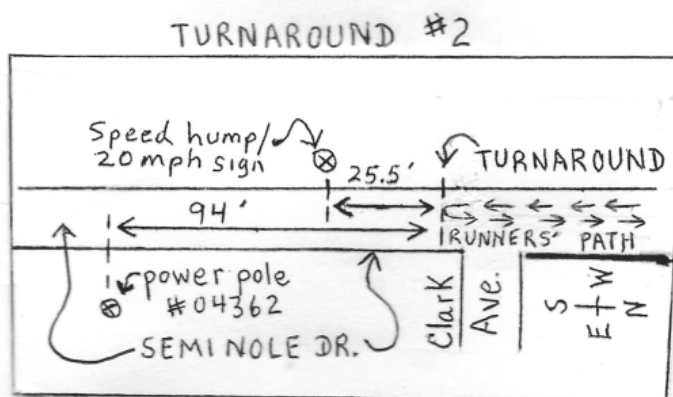 TURNAROUND #2
Speed hump/
20 mph sign
25.5'
TURNAROUND
94'
RUNNERS' PATH
power pole
#04362
SEMINOLE DR.
Clark
Ave.
S
E W
N